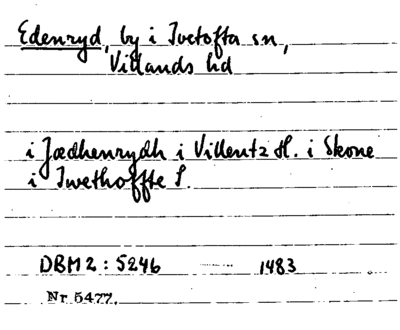 Edenryd, by i Ivetofta sn,
Villands hd
i Jædhenrydh i Villentz H. i Skone
i Iwethoffte S.
DBM 2 : 5246 1483
Nr 5477.